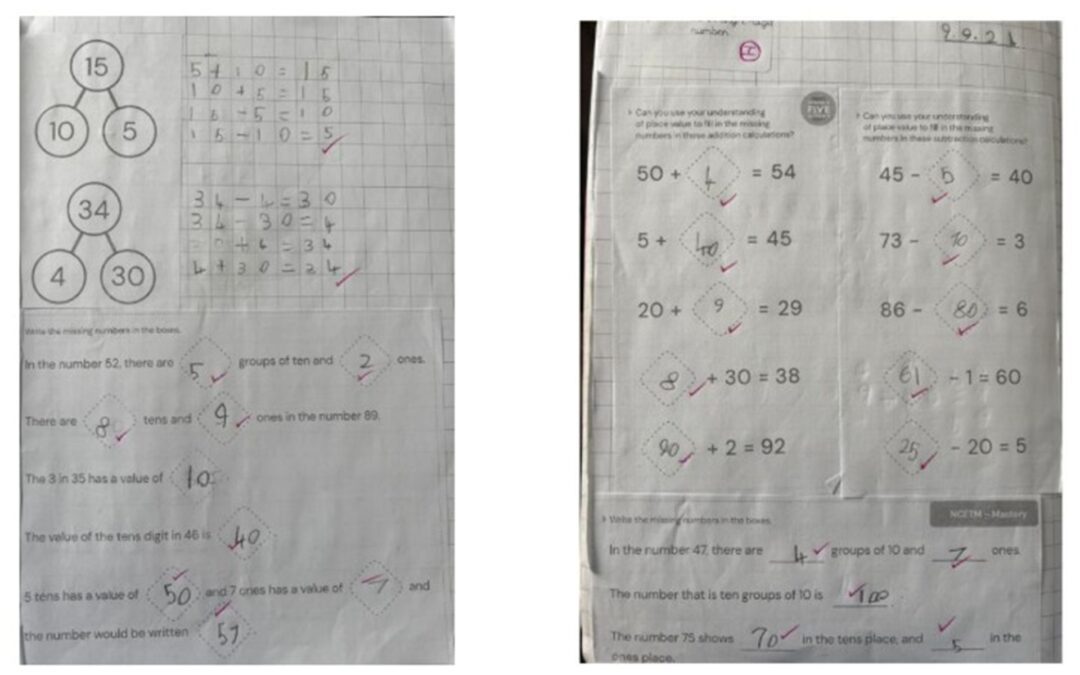 15
10 5
5 + 10 = 15
10 + 5 = 15
15 - 5 = 10
15 - 10 = 5
34
4 30
34 - 4 = 30
34 - 30 = 4
+ 4 = 34
4 + 30 = 34
Write the missing numbers in the boxes.
In the number 52, there are 5 groups of ten and 2 ones.
There are 8 tens and 9 ones in the number 89.
The 3 in 35 has a value of 10
The value of the tens digit in 46 is 40
5 tens has a value of 50 and 7 ones has a value of 7 and
the number would be written 57
number.
I
9.9.21
› Can you use your understanding
of place value to fill in the missing
numbers in these addition calculations?
FIVE
50 + 4 = 54
5 + 40 = 45
20 + 9 = 29
8 + 30 = 38
90 + 2 = 92
› Can you use your understanding
of place value to fill in the missing
numbers in these subtraction calculations?
45 - 5 = 40
73 - 70 = 3
86 - 80 = 6
61 - 1 = 60
25 - 20 = 5
NCETM - Mastery
› Write the missing numbers in the boxes.
In the number 47, there are 4 groups of 10 and 7 ones.
The number that is ten groups of 10 is 100
The number 75 shows 70 in the tens place, and 5 in the
ones place.